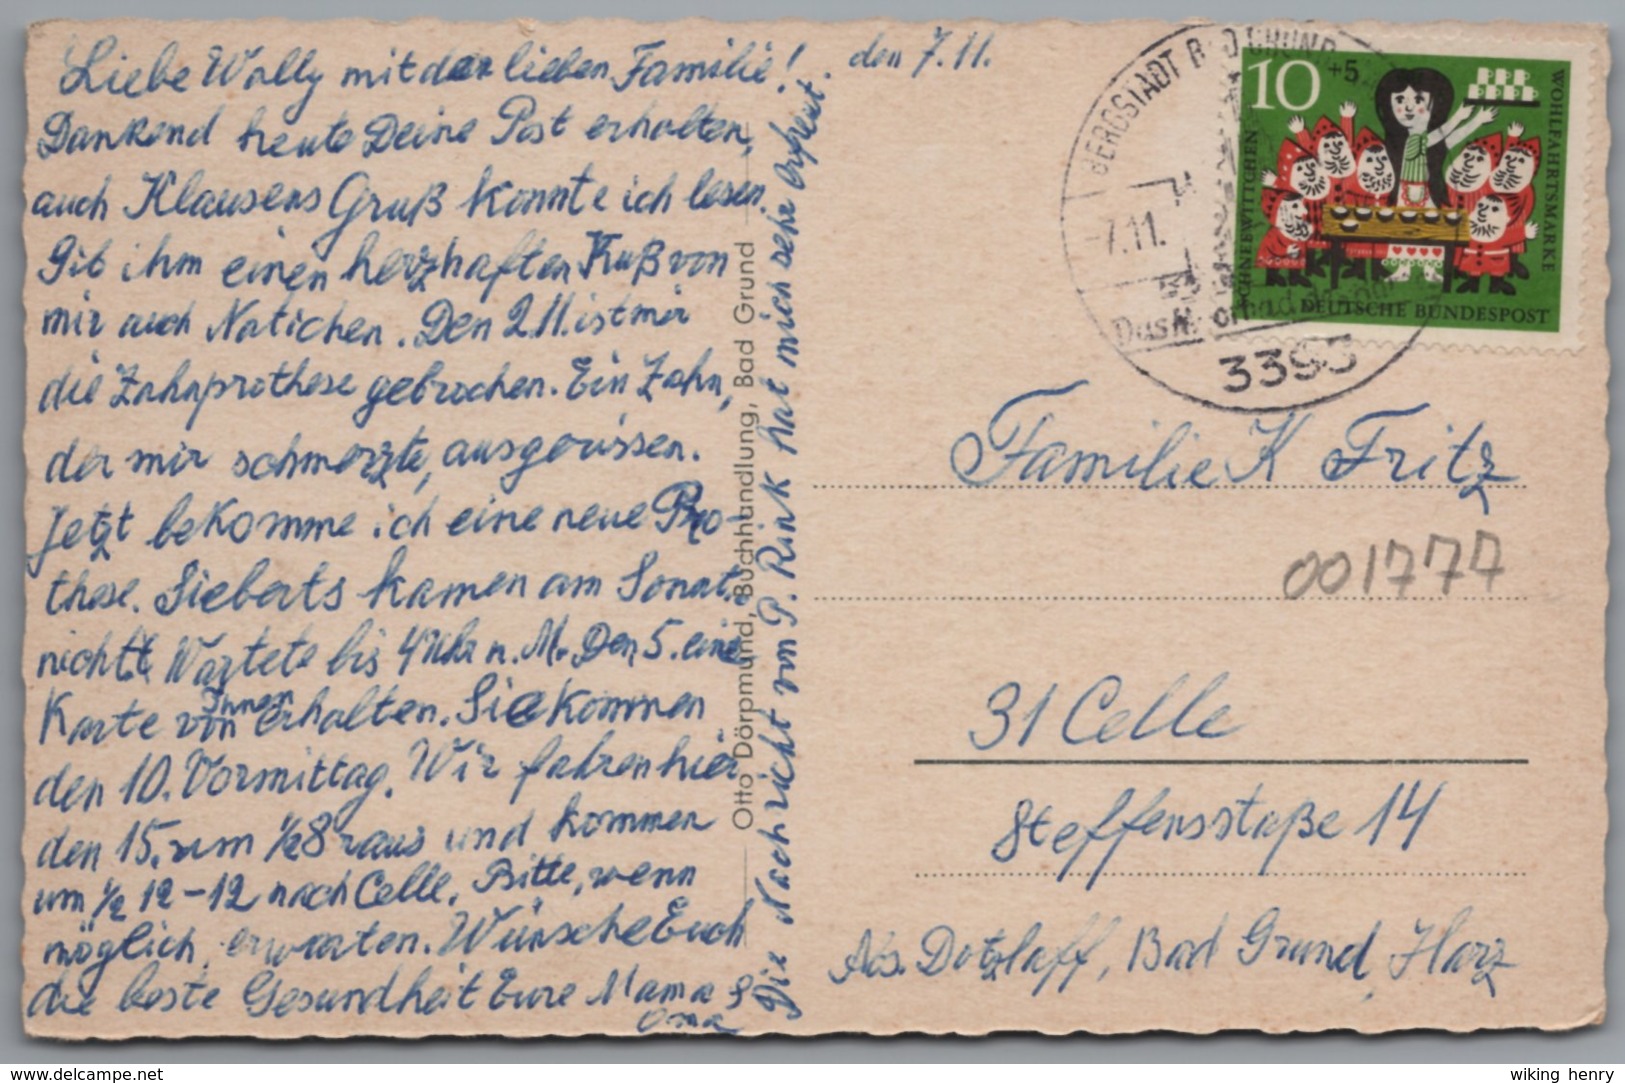 Liebe Wally mit der lieben Familie!
den 7.11.
Dankend heute Deine Post erhalten,
auch Klausens Gruß konnte ich lesen.
Gib ihm einen herzhaften Kuß von
mir auch Natichen. Den 2.11. ist mir
die Zahnprothese gebrochen. Ein Zahn,
der mir schmerzte, ausgerissen.
Jetzt bekomme ich eine neue Pro-
these. Sieberts kamen am Sonnt.
nicht Wartete bis 4 Uhr n. M. Den 5. eine
Karte von Ihnen erhalten. Sie kommen
den 10. Vormittag. Wir fahren hier
den 15. um ½8 raus und kommen
um ½ 12-12 nach Celle. Bitte, wenn
möglich, erwarten. Wünsche Euch
die beste Gesundheit Eure Mama &
Oma
Die Nachricht von P. Rink hat mich sehr erfreut.
Otto Dörpmund, Buchhandlung, Bad Grund
BERGSTADT BAD GRUND
-7.11.
3393
10+5
SCHNEEWITTCHEN
WOHLFAHRTSMARKE
DEUTSCHE BUNDESPOST
Familie K Fritz
001777
31 Celle
Steffensstaße 14
Abs. Dotzlaff, Bad Grund, Harz
www.delcampe.net
wiking_henry